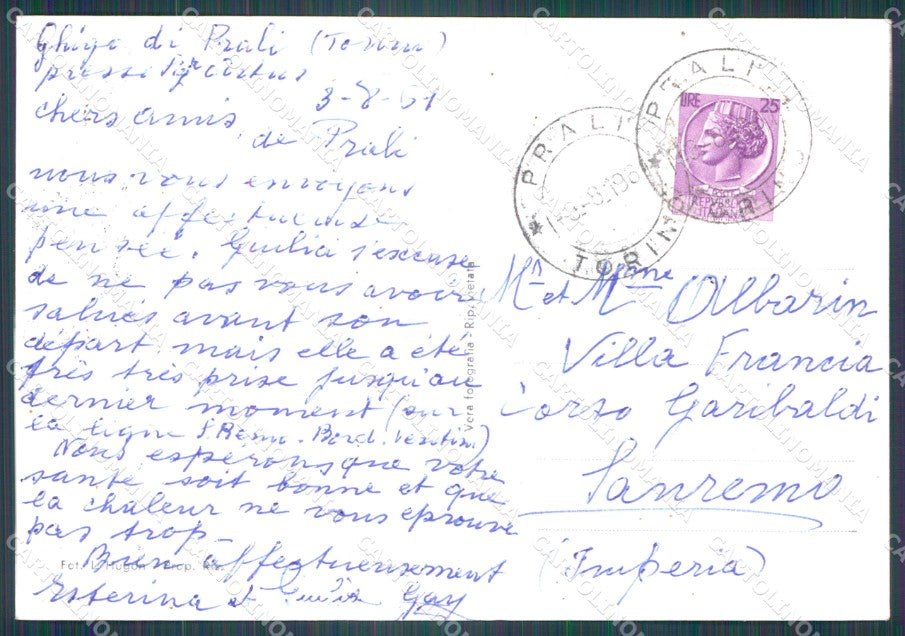 Ghigo di Prali (Torino)
presso Sgr
3-8-61
chers amis,
de Prali
nous vous envoyons
une affectueuse
pensée. Giulia s'excuse
de ne pas vous avoir
salués avant son
départ mais elle a été
très très prise jusqu'au
dernier moment (sur
la ligne S. Remo - Bord. Ventim)
Nous espérons que votre
santé soit bonne et que
la chaleur ne vous éprouve
pas trop -
Bien affectueusement
Esterina et Gay
Fot. L. Hugon - Prop. Ris.
Vera fotografia - Rip. vietata
PRALI
-8-196
* TORINO
PRALI
* TORINO
LIRE 25
REPUBBLICA
ITALIANA
Mr et Mme Albarin
Villa Francia
Corso Garibaldi
Sanremo
(Imperia)
CARTOLINOMANIA